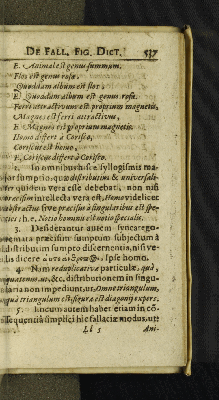 DE FALL. FIG. DICT. 537
E. Animal est genus summum.
Flos est genus rosæ.
Quoddam album est flos:
E. Quoddam album est genus rosæ.
Ferri attractivum est proprium magnetis,
Magnes est ferri attractivus,
E. Magnes est proprium magnetis.
Homo differt à Corisco,
Coriscus est homo,
E. Coriscus differt à Corisco.
In omnibus hisce syllogismis major sumptio, quæ
distributim & universaliter quidem vera esse debebat, non nisi
præcisim intellecta vera est, Homo videlicet
abstractus sive præcisus à singularibus est species
: h.e. Notio hominis est notio specialis.
3. Desiderantur autem syncategoremata
præcisim sumptum subjectum à
distributim sumpto discernentia, nisi velis
dicere Ipse homo.
4. Nam reduplicativæ particulæ, quà,
quatenus, ut, &c. distributionem in singularia
non impediunt, ut, Omne triangulum,
quà triangulum est, figura est diagonij expers.
5. autem habet etiam in
sequentiâ simplici hic fallaciæ modus, ut:
Ll 5 Ani-